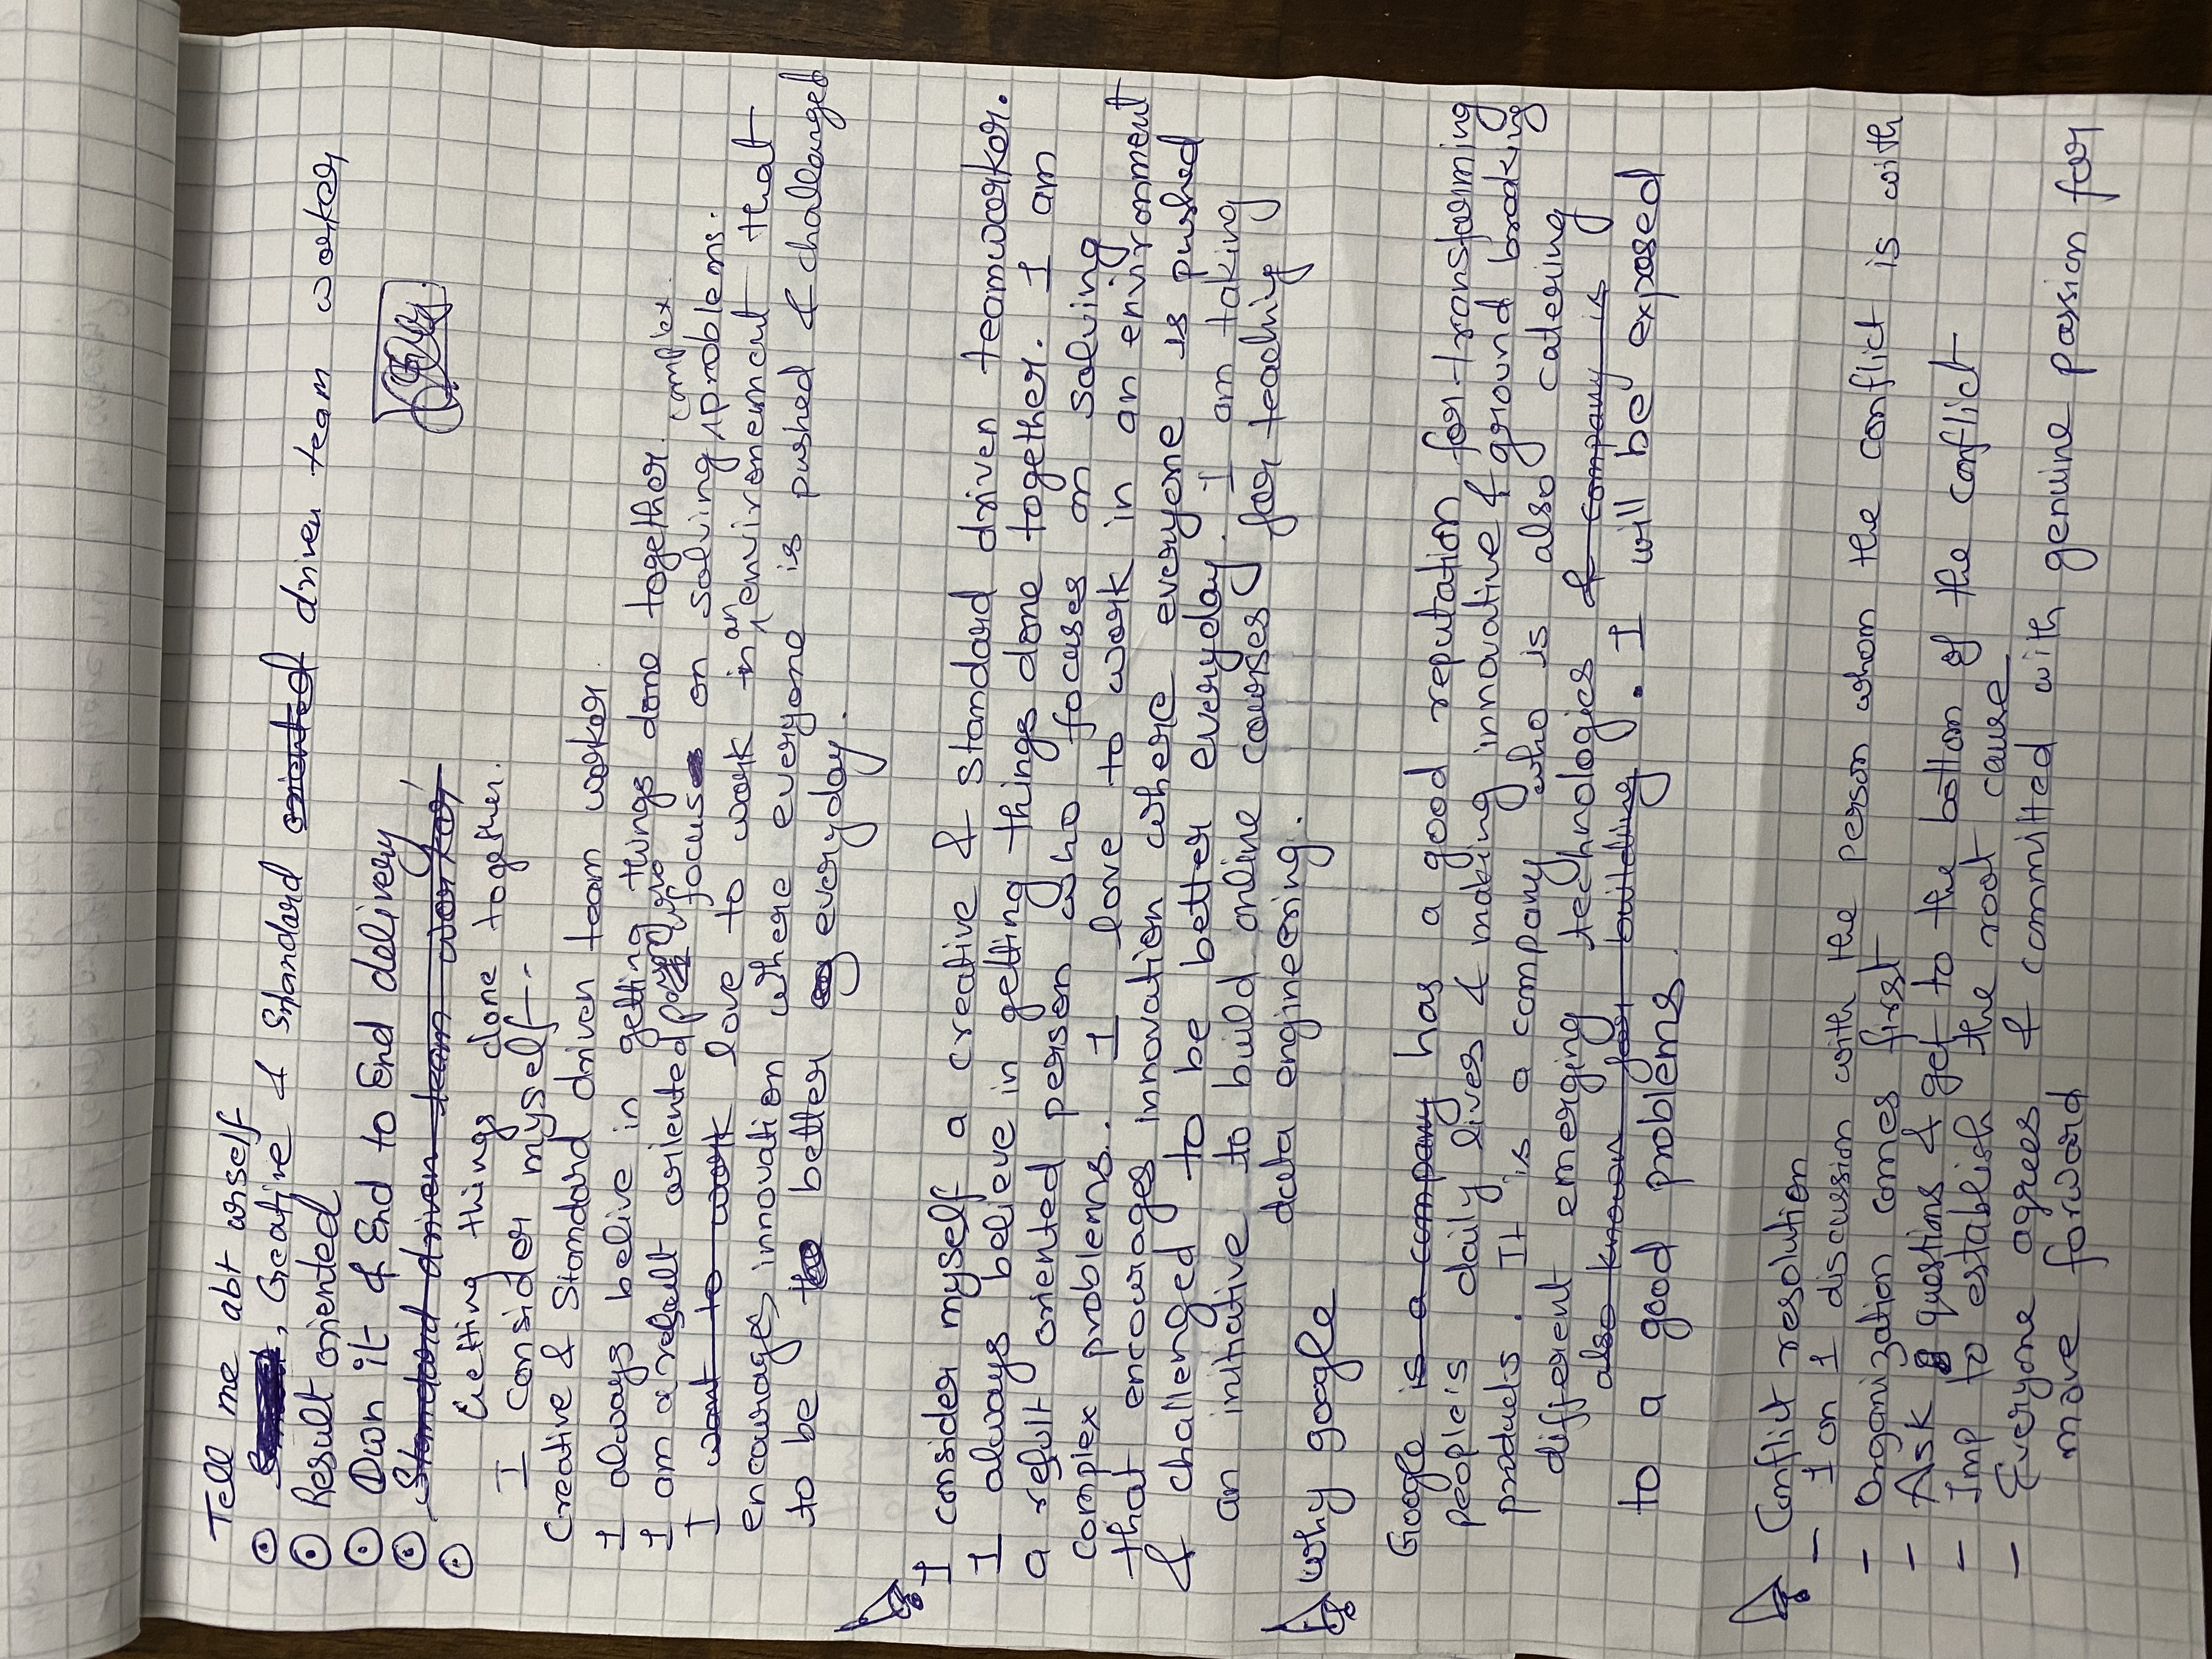 Tell me abt urself
, Creative & Standard oriented driven team worker
Result oriented
Own it & End to End delivery,
Standard driven team worker
Getting things done together.
I consider myself--
Creative & Standard driven team worker.
I always belive in getting things done together.
I am a result oriented person who focus on solving complex problems.
I want to work love to work in an environement that
encourages innovation where everyone is pushed & challanged
to be better everyday.
I consider myself a creative & standard driven teamworker.
I always believe in getting things done together. I am
a result oriented person who focuses on solving
complex problems.. I love to work in an environment
that encourages innovation where everyone is pushed
& challenged to be better everyday. I am taking
an initiative to build online courses for teaching
data engineering.
Why google
Google is a company has a good reputation for transforming
people's daily lives & making innovative & ground breaking
products. It is a company who is also catering
different emerging technologies & company is
also known for building . I will be exposed
to a good problems.
Conflict resolution
- 1 on 1 discussion with the person whom the conflict is with
- Organization comes first
- Ask questions & get to the bottom of the conflict
- Imp to establish the root cause
- Everyone agrees & committed with genuine passion for
move forward